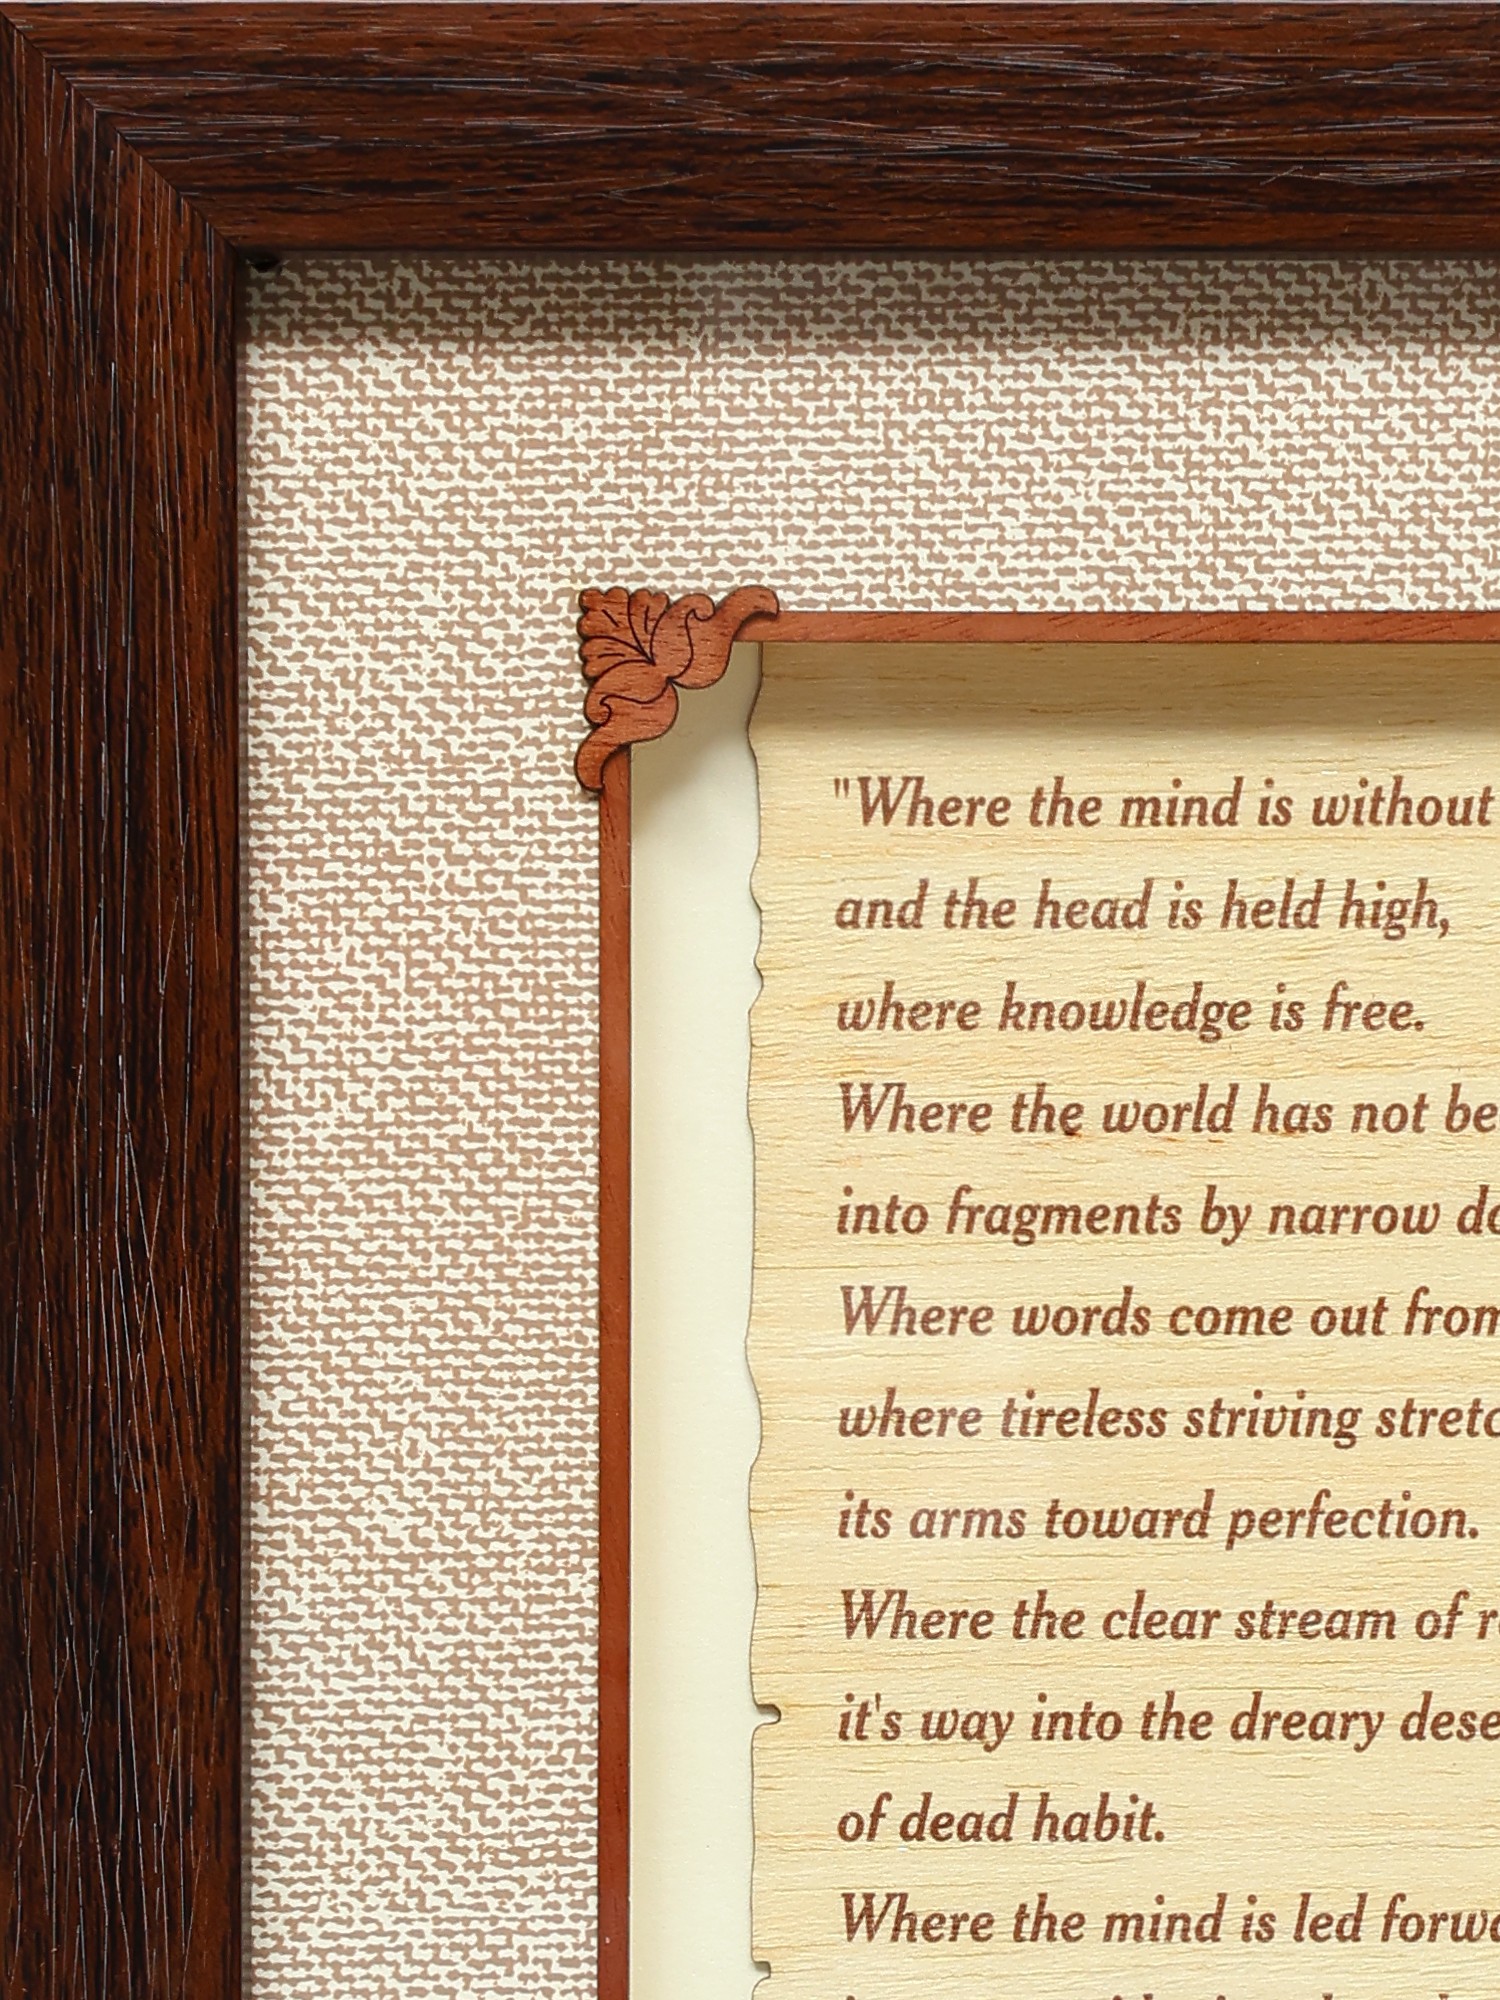 "Where the mind is without
and the head is held high,
where knowledge is free.
Where the world has not be
into fragments by narrow do
Where words come out from
where tireless striving stretc
its arms toward perfection.
Where the clear stream of r
it's way into the dreary dese
of dead habit.
Where the mind is led forwa